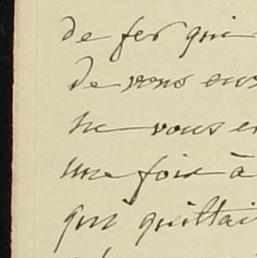 de fer qui
de vous en
ne vous en
une fois à
qui quittai